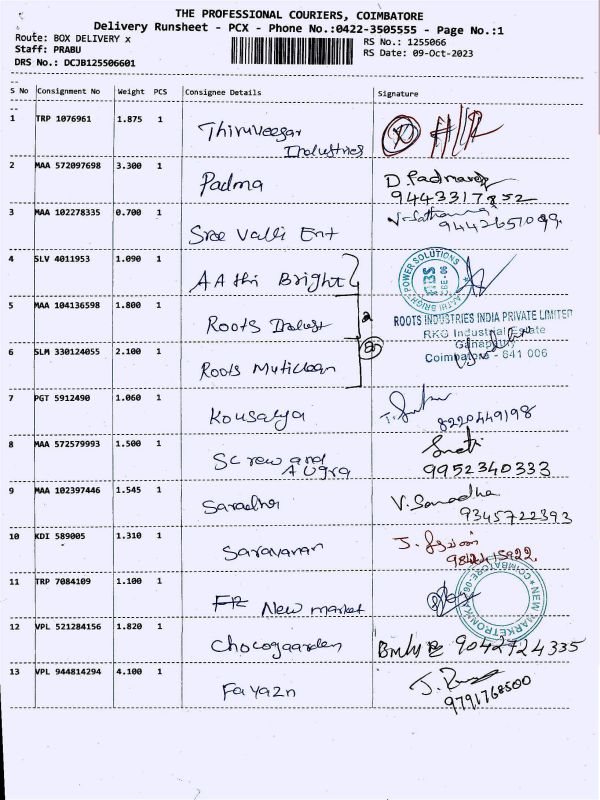 THE PROFESSIONAL COURIERS, COIMBATORE
Delivery Runsheet - PCX - Phone No.:0422-3505555 - Page No.:1
Route: BOX DELIVERY x
RS No.: 1255066
Staff: PRABU
RS Date: 09-Oct-2023
DRS No.: DCJB125506601
S No Consignment No Weight PCS Consignee Details Signature
1 TRP 1076961 1.875 1 Thiruveegar
Industries
2 MAA 572097698 3.300 1 Padma D. Padma
9443317852
3 MAA 102278335 0.700 1 Sree Valli Ent
9442657099
4 SLV 4011953 1.090 1 AAthi Bright
AATHI BRIGHT POWER SOLUTIONS
CBE-06
5 MAA 104136598 1.800 1 Roots Indust 2
ROOTS INDUSTRIES INDIA PRIVATE LIMITED
RKG Industrial Estate
Ganapathy
Coimbatore - 641 006
6 SLM 330124055 2.100 1 Roots Muticlean
7 PGT 5912490 1.060 1 Kousalya
8220449198
8 MAA 572579993 1.500 1 Screw and
Augra
9952340333
9 MAA 102397446 1.545 1 Saradha V. Saradha
9345722393
10 KDI 589005 1.310 1 Saravanan
11 TRP 7084109 1.100 1 New market
NEW MARKETRONIK
COIMBATORE-06
12 VPL 521284156 1.820 1 Chocogaarden 9042724335
13 VPL 944814294 4.100 1 Fayazn
9791768500